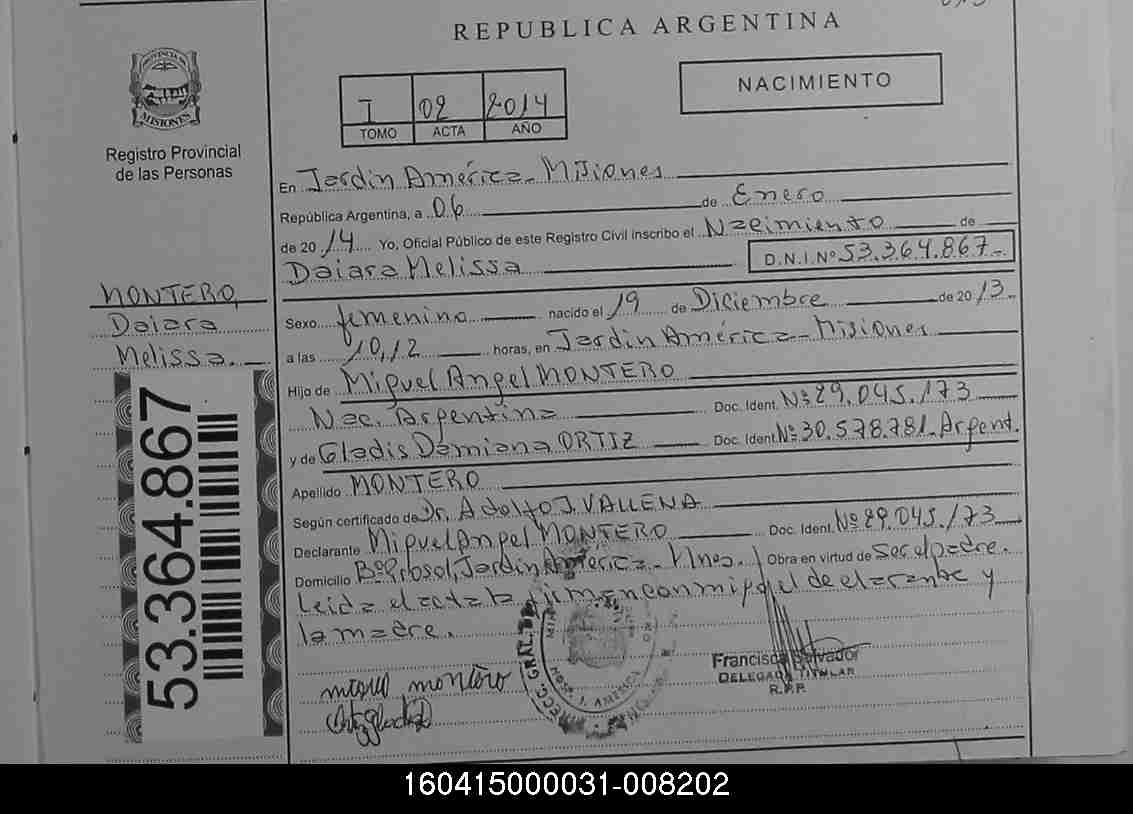 REPUBLICA ARGENTINA
PROVINCIA DE
MISIONES
Registro Provincial
de las Personas
I 02 2014
TOMO ACTA AÑO
NACIMIENTO
En Jardín América - Misiones
República Argentina, a 06 de Enero
de 2014 Yo, Oficial Público de este Registro Civil inscribo el Nacimiento de
Daiara Melissa D.N.I. Nº 53.364.867-
MONTERO,
Daiara
Melissa.
53.364.867
Sexo femenino nacido el 19 de Diciembre de 2013
a las 10,12 horas, en Jardín América - Misiones
Hijo de Miguel Angel MONTERO
Nac. Argentina Doc. Ident. Nº 29.045.173
y de Gladis Damiana ORTIZ Doc. Ident. Nº 30.578.781- Argent.
Apellido MONTERO
Según certificado de Dr. Adolfo J. VALLENA
Declarante Miguel Angel MONTERO Doc. Ident. Nº 29.045.173
Domicilio Bº Prosol, Jardín América - Mnes. Obra en virtud de ser el padre.
Leida el acta la firman conmigo el declarante y
la madre.
miguel montero
Francisco Salvador
DELEGADO TITULAR
R.P.P.
160415000031-008202